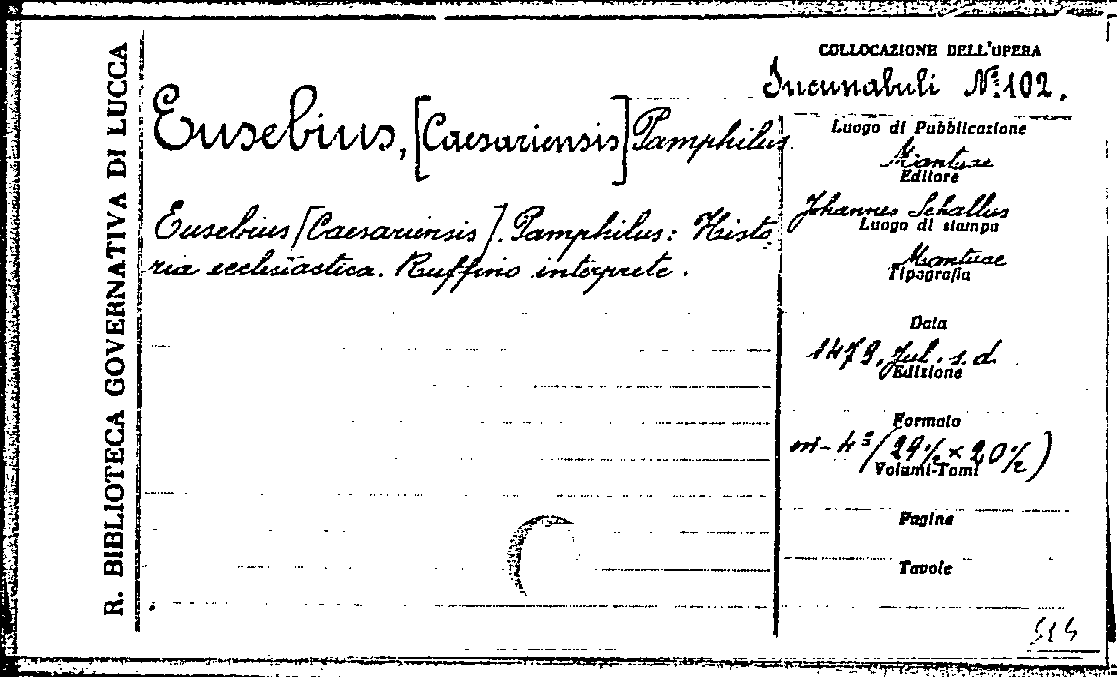 R. BIBLIOTECA GOVERNATIVA DI LUCCA
Eusebius, [Caesariensis] Pamphilus.
Eusebius [Caesariensis]. Pamphilus: Histo-
ria ecclesiastica. Ruffino interprete.
COLLOCAZIONE DELL'OPERA
Incunabuli No: 102.
Luogo di Pubblicazione
Mantuae
Editore
Johannes Schallus
Luogo di stampa
Mantuae
Tipografia
Data
1479, Jul. s. d.
Edizione
Formato
in-4º (29½ × 20½)
Volumi-Tomi
Pagine
Tavole